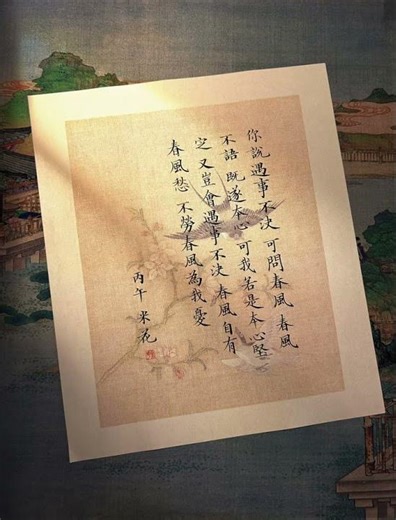 你說遇事不決 可問春風 春風
不語 既遂本心 可我若是本心堅
定 又豈會遇事不決 春風自有
春風愁 不勞春風為我憂
丙午 米花